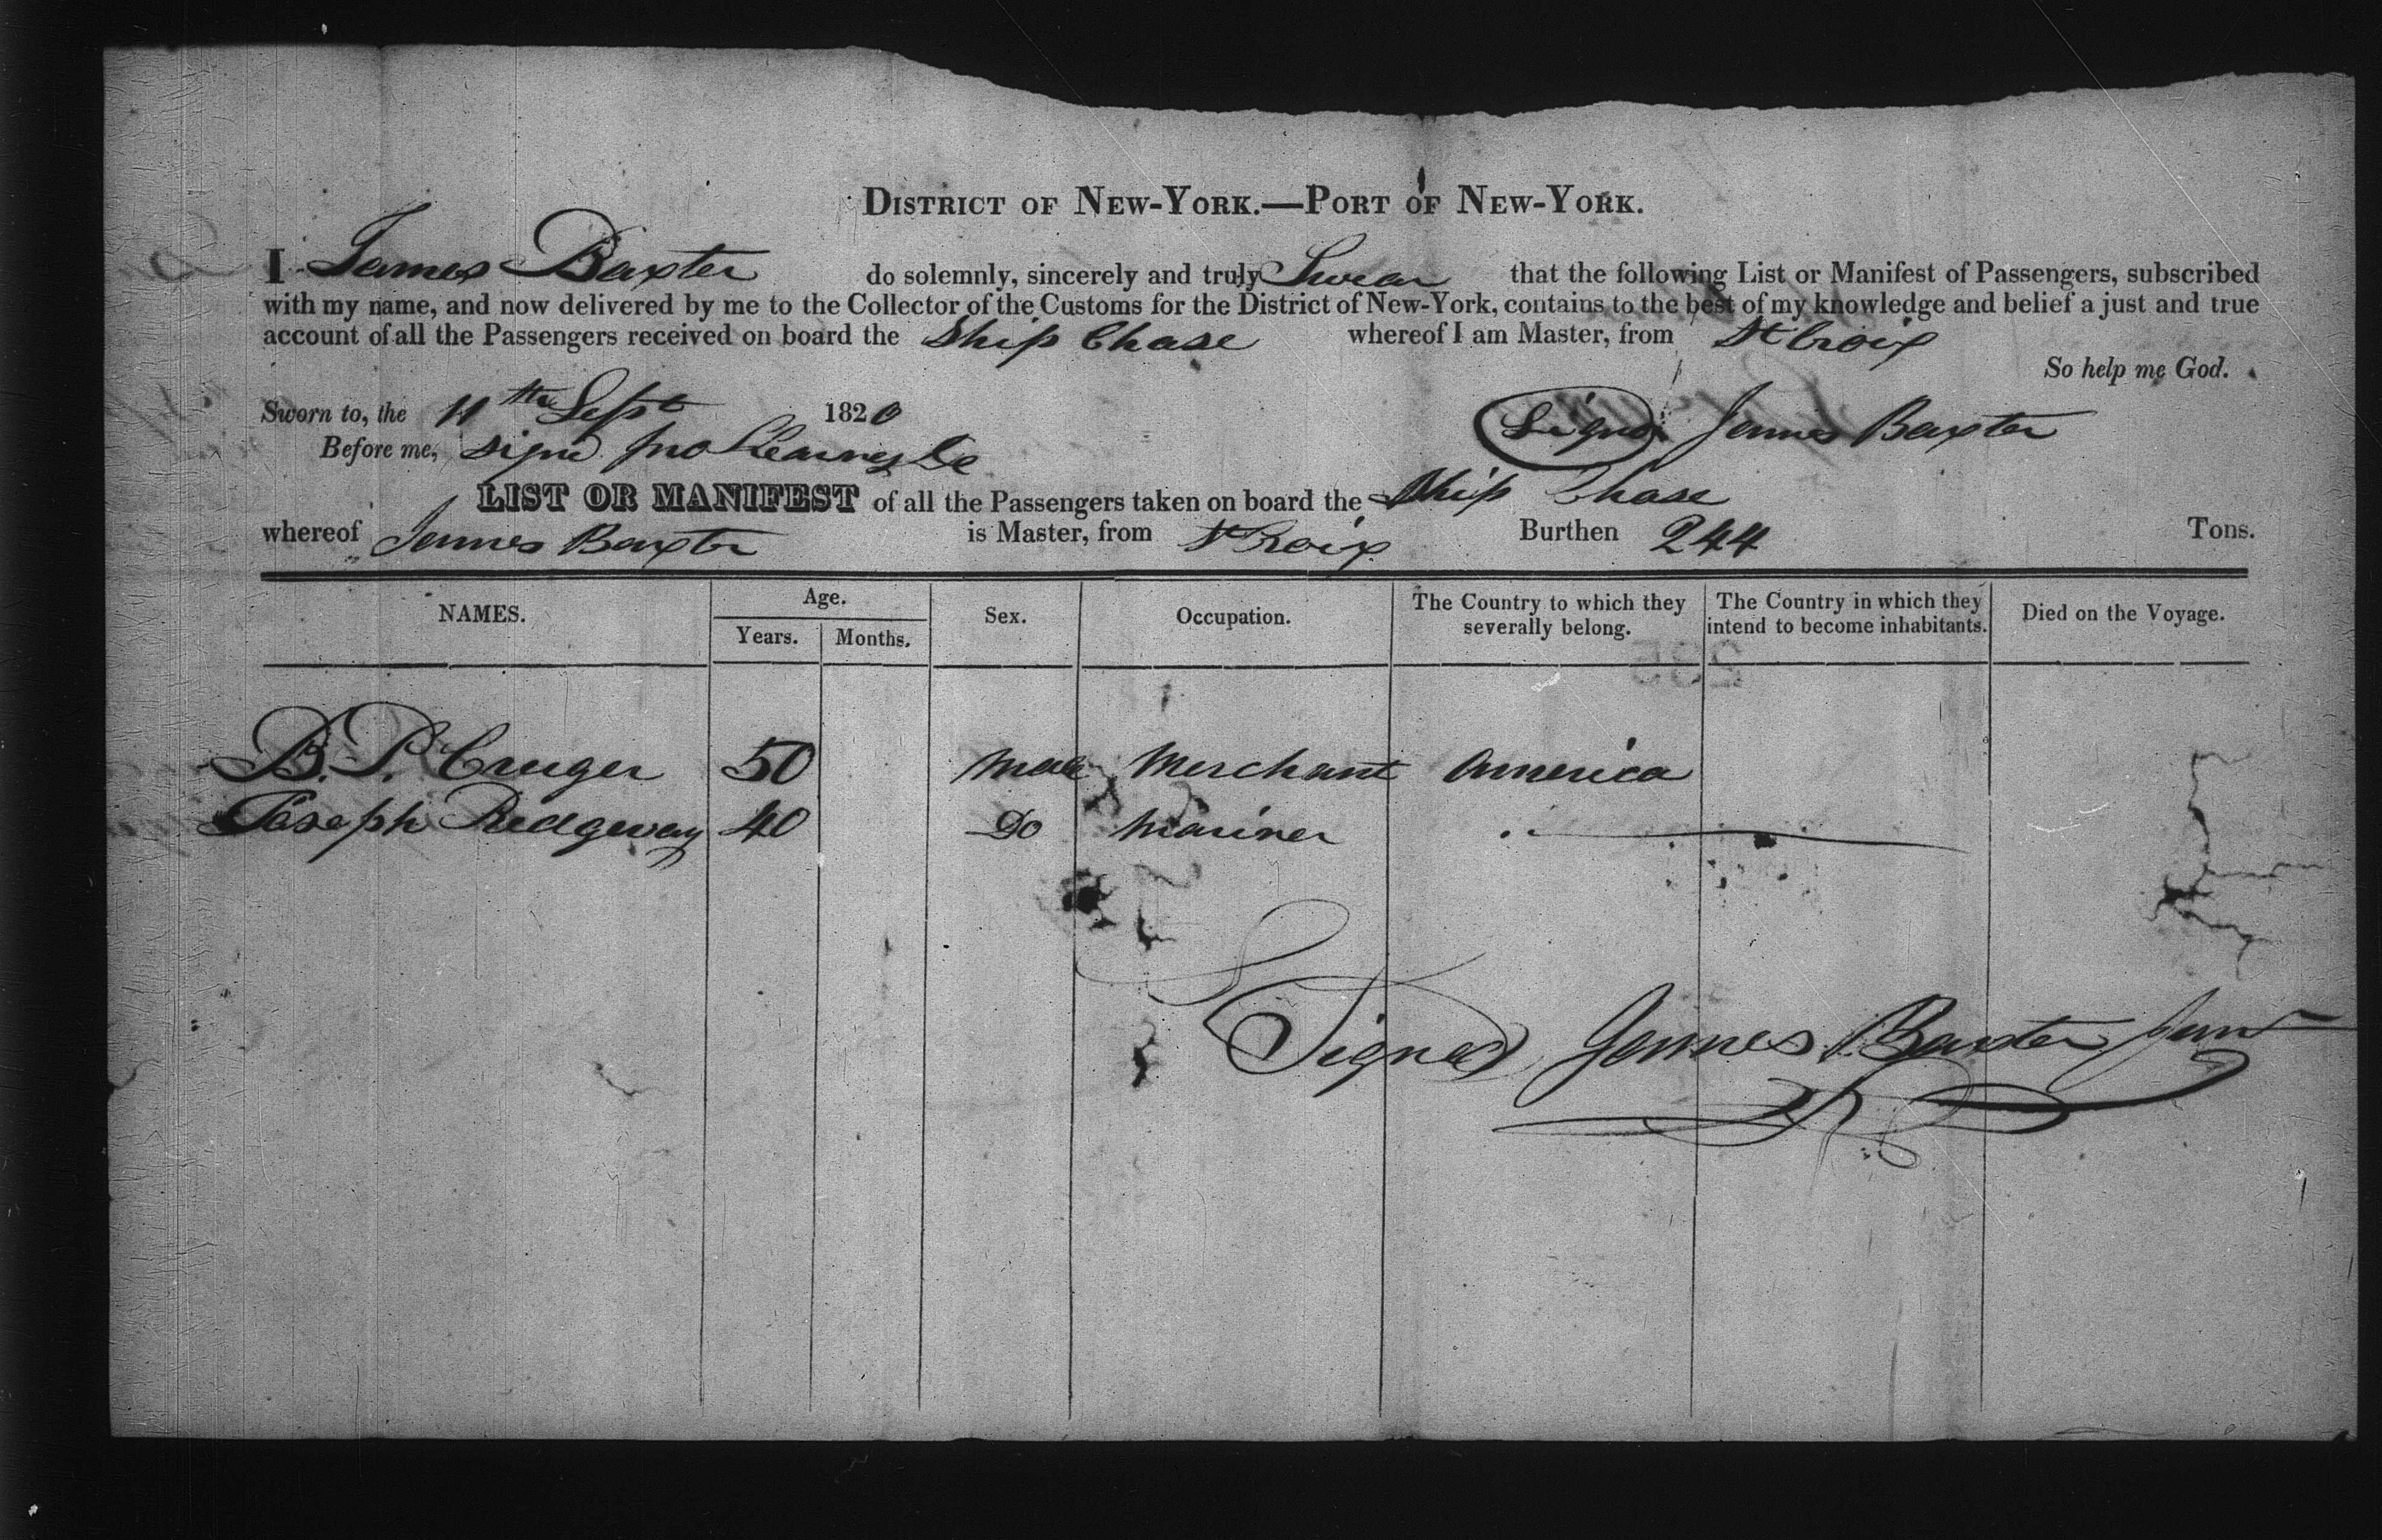 DISTRICT OF NEW-YORK.—PORT OF NEW-YORK.
I James Baxter do solemnly, sincerely and truly Swear that the following List or Manifest of Passengers, subscribed
with my name, and now delivered by me to the Collector of the Customs for the District of New-York, contains to the best of my knowledge and belief a just and true
account of all the Passengers received on board the Ship Chase whereof I am Master, from St Croix
So help me God.
Sworn to, the 11th Sept 1820 Signed James Baxter
Before me, signd Jno
LIST OR MANIFEST of all the Passengers taken on board the Ship Chase
whereof James Baxter is Master, from St Croix Burthen 244 Tons.
NAMES. Age. Years. Months. Sex. Occupation. The Country to which they severally belong. The Country in which they intend to become inhabitants. Died on the Voyage.
B. P. Cruger 50 Male Merchant America
Joseph Ridgway 40 Do Mariner "
Signed James Baxter Junr